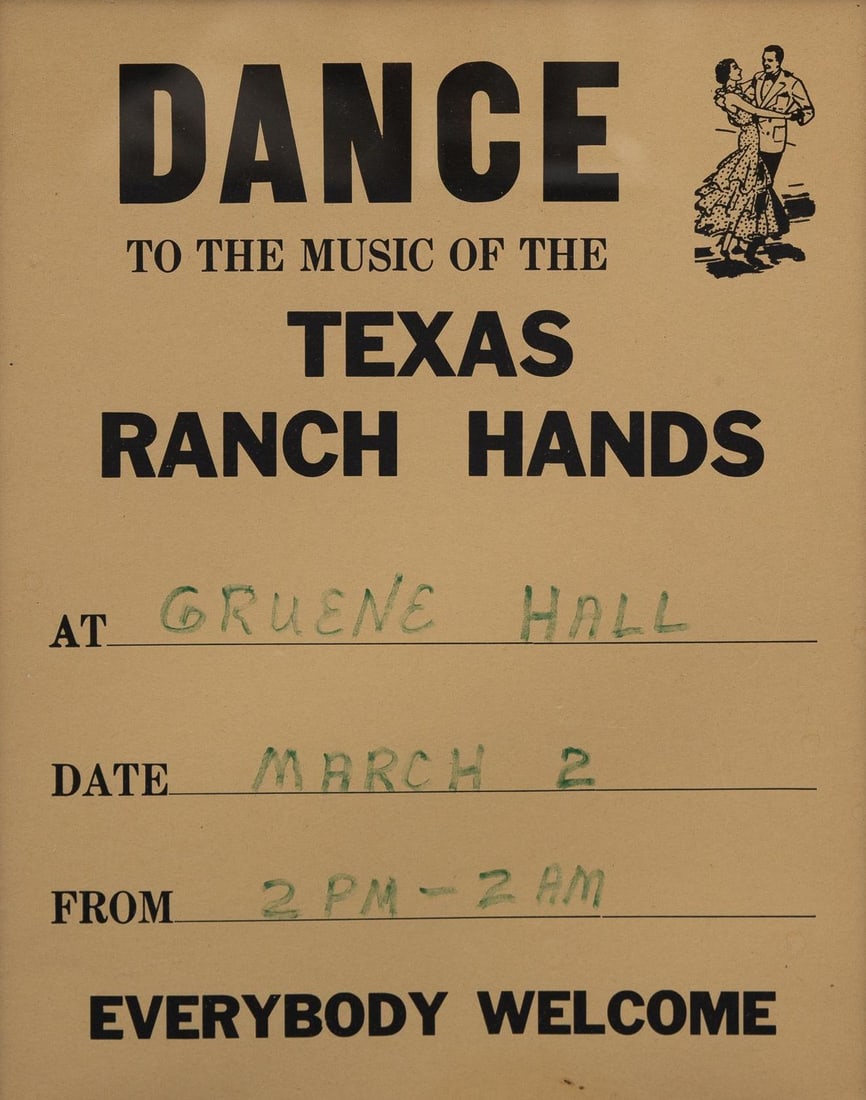 DANCE
TO THE MUSIC OF THE
TEXAS
RANCH HANDS
AT GRUENE HALL
DATE MARCH 2
FROM 2 PM - 2 AM
EVERYBODY WELCOME